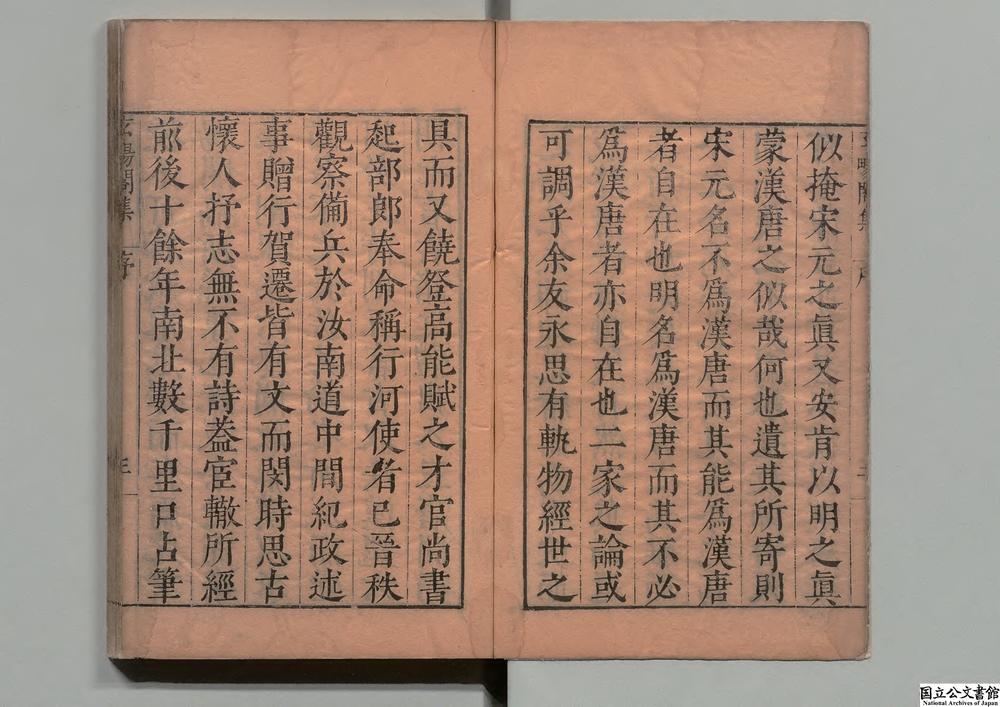 似掩宋元之眞又安肯以明之眞
蒙漢唐之似哉何也遺其所寄則
宋元名不爲漢唐而其能爲漢唐
者自在也明名爲漢唐而其不必
爲漢唐者亦自在也二家之論或
可調乎余友永思有軌物經世之
具而又饒登高能賦之才官尚書
起部郎奉命稱行河使者已晉秩
觀察備兵於汝南道中間紀政述
事贈行賀遷皆有文而閔時思古
懷人抒志無不有詩葢宦轍所經
前後十餘年南北數千里口占筆
集 序
国立公文書館
National Archives of Japan